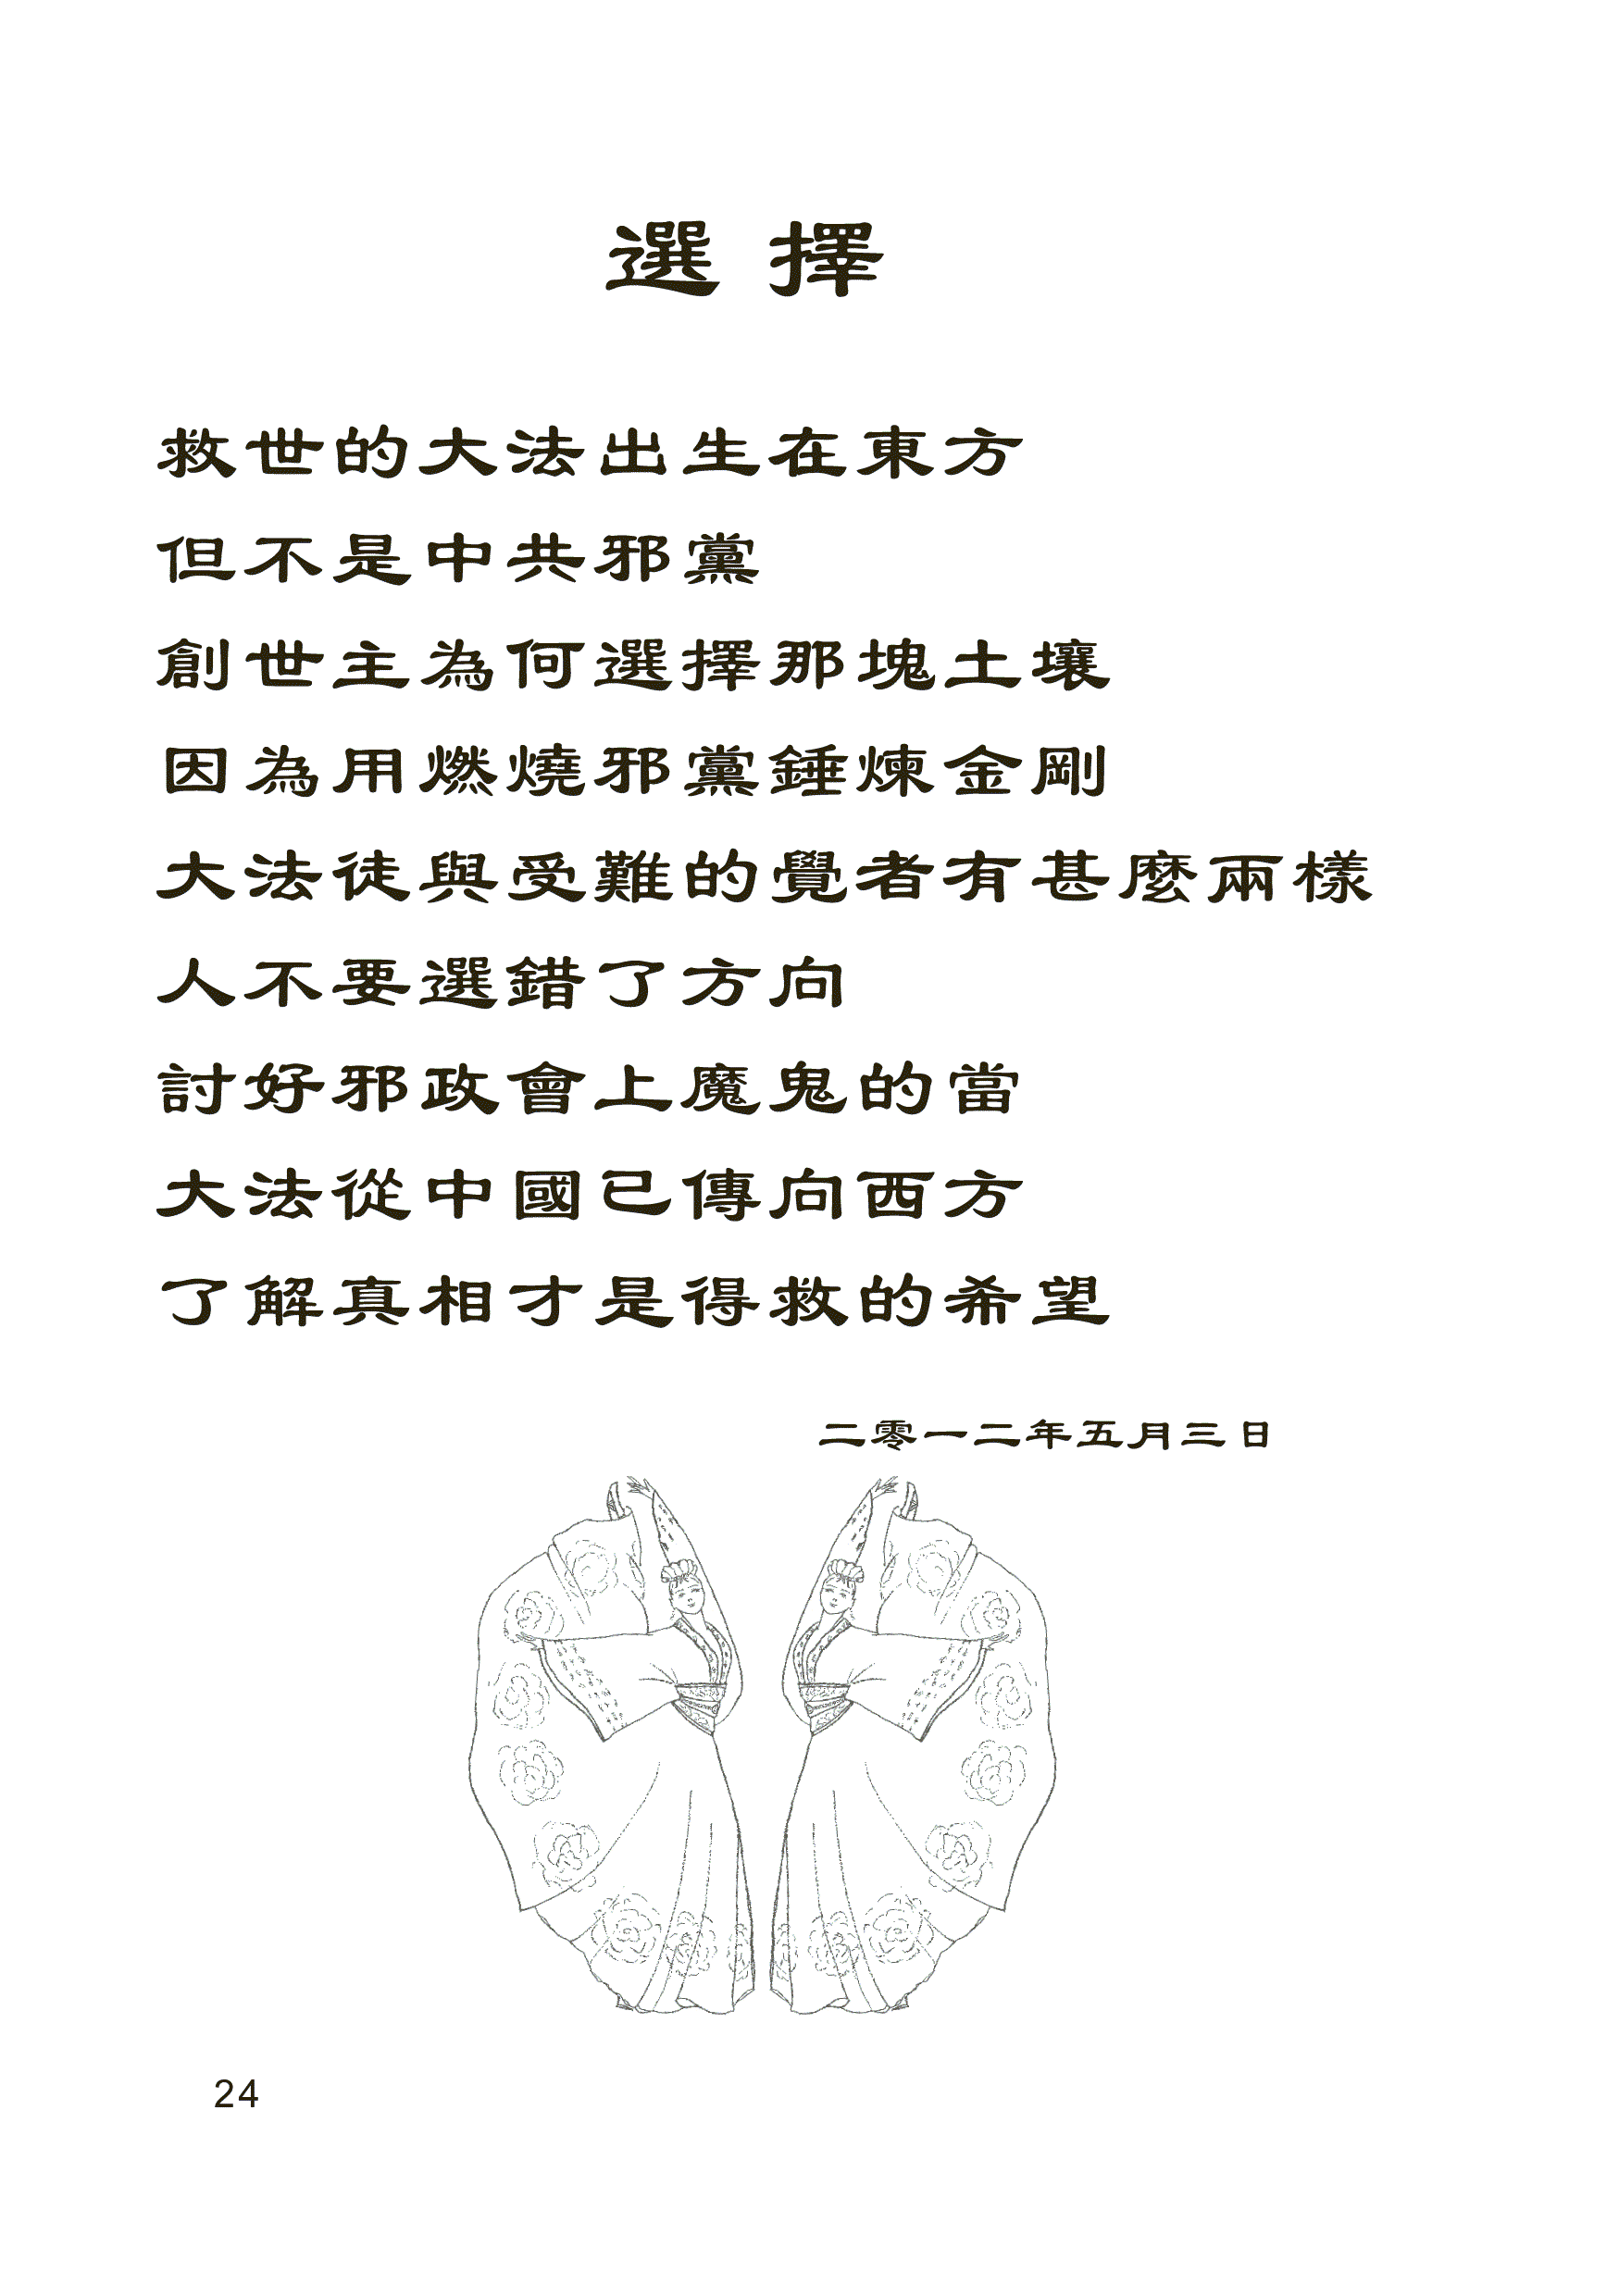 選擇
救世的大法出生在東方
但不是中共邪黨
創世主為何選擇那塊土壤
因為用燃燒邪黨錘煉金剛
大法徒與受難的覺者有甚麼兩樣
人不要選錯了方向
討好邪政會上魔鬼的當
大法從中國已傳向西方
了解真相才是得救的希望
二零一二年五月三日
24